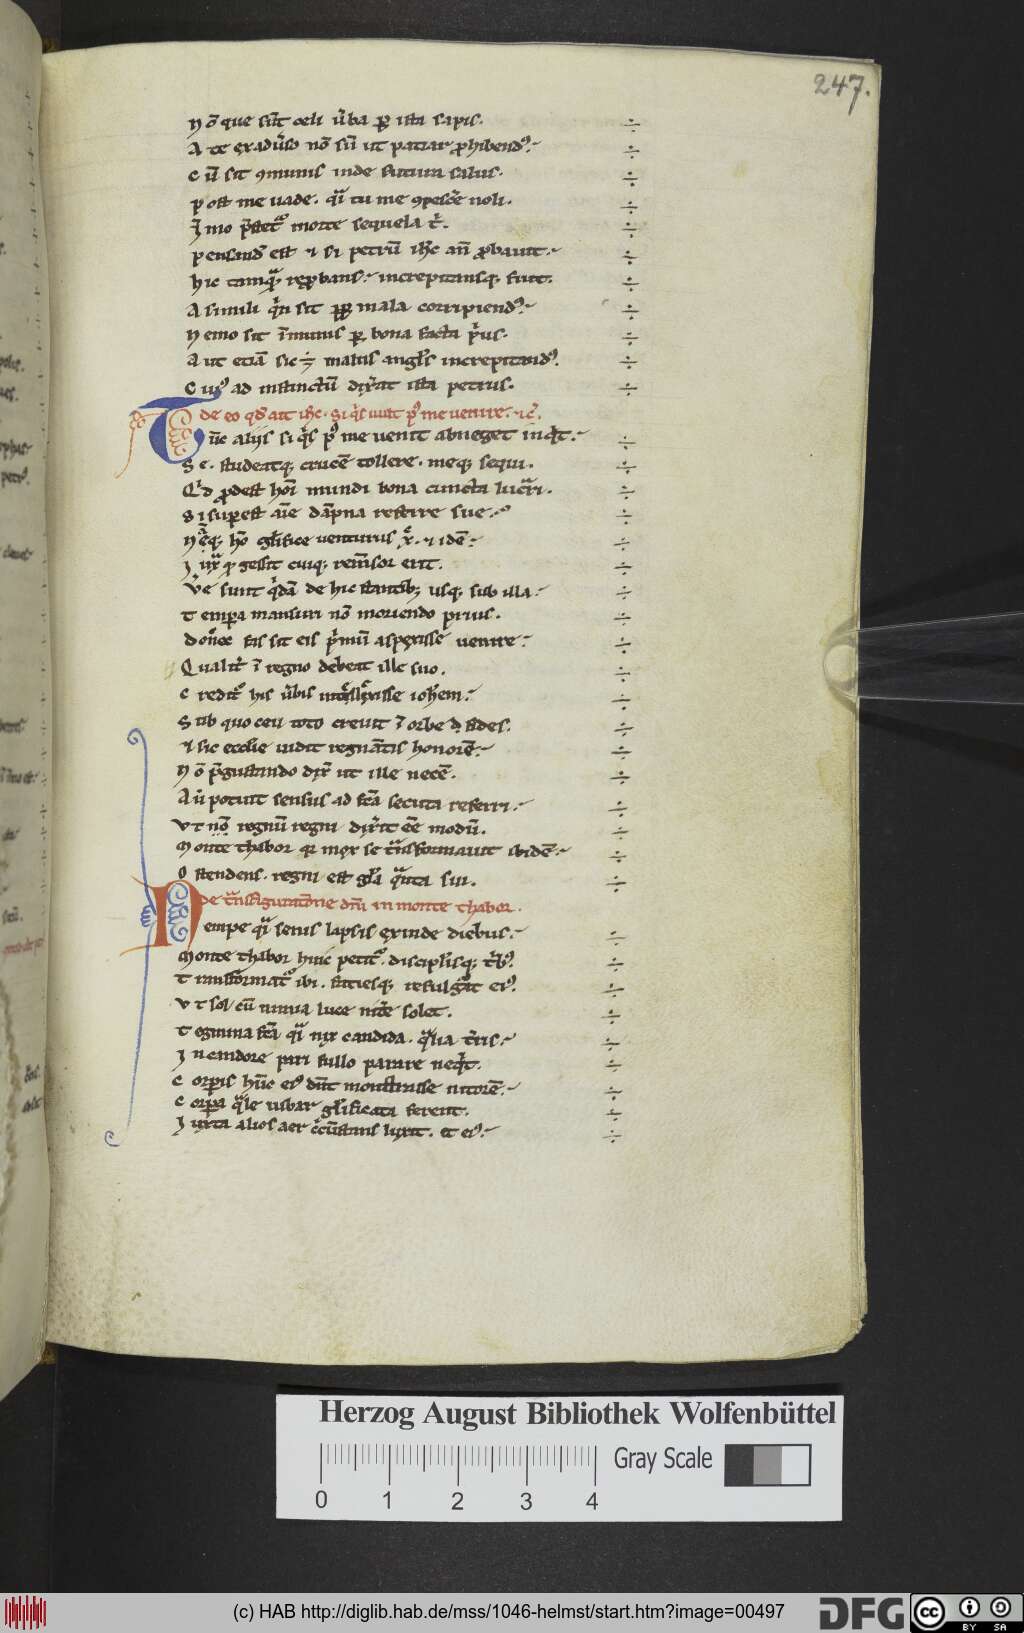 247.
Nō que sūt celi ůba ꝑ ista sapis.
A te exaduso nō sū ut patiar ꝓhibend⁹.
Cū sit ꝯmunis inde futura salus.
Post me uade. qͣ tu me ꝯpesce noli.
morte sequela
est ⁊ si petrū ihc ꝓbauit.
Hic tamqͣ reꝓbans. increpitansq; fuit.
A simili sit mala corripiend⁹.
Nemo sit īmunis ꝑ bona facta pͥus.
Aut etiā sic ÷ malus angls increpitand⁹.
Cui⁹ ad instinctū dixͣat ista petrus.
De eo qd ait ihc. Si qͥs uult p⁹ me uenire. ⁊c̄.
Tūc aliis si qͥs p⁹ me uenit abneget inqͥt.
Se. studeatq; crucē tollere. meq; sequi.
Qͥd ꝓdest hoī mundi bona cuncta lucrari.
Si supͥest aīe dāpna referre sue.
uenturus ⁊ idē.
cuiq; erit.
Ve sunt qͥdā de hic stantib; usq; sub illa.
Tempͥa mansuri nō moriendo prius.
Donec fas sit eis pͥmū aspexisse uenire.
Qualit̄ ī regno debeat ille suo.
Credit⁹ his ůbis iohem.
Sub quo ceu toto creuit ī orbe fides.
⁊ sic ecclie uidit regnātis honorē.
Nō pͣgustando dixͭ ut ille necē.
Au̇ potuit sensus ad fcā secuta referri.
Vt nō regnū regni dixͥt eē modū.
Monte thabor qͥ mox se tͣnsformauit ibidē.
Ostendens. regni est glͣa qͣnta sui.
De tͣnsfiguratōne dnī in monte thabor.
Nempe qͣ senis lapsis exinde diebus.
Monte thabor hinc petit⁹. disciplisq; tͥb⁹.
Transformat⁹ ibi. faciesq; refulget ei⁹.
Vt sol cū nimia luce nite solet.
Tegmina fcā qͣ nix candida. qͣlia tris.
In candore pari fullo parare neqͥt.
Corpis hūc ei⁹ dūt monstrasse nitorē.
Corpa qͣle iubar glificata ferent.
Iuxta alios aer cͥcūstans luxit. et ei⁹.
Herzog August Bibliothek Wolfenbüttel
Gray Scale
0 1 2 3 4
(c) HAB http://diglib.hab.de/mss/1046-helmst/start.htm?image=00497
DFG
cc BY SA